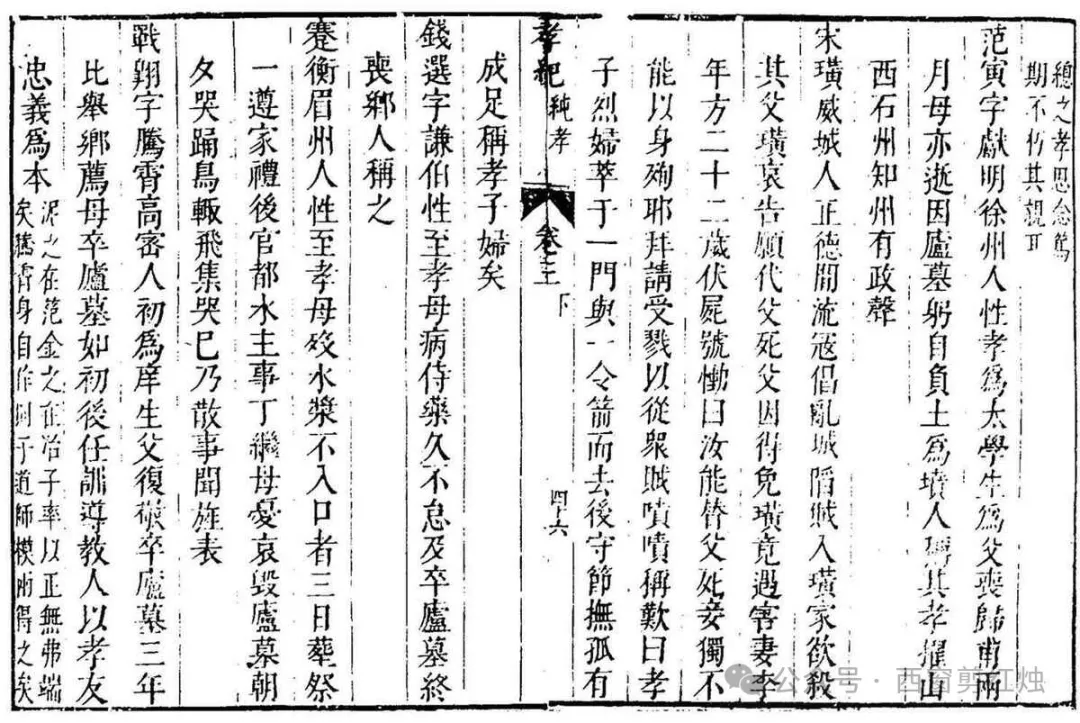 總之孝思念篤
期不朽其親耳
范寅字獻明徐州人性孝為太學生為父喪歸甫兩
月母亦逝因廬墓躬自負土為墳人稱其孝擢山
西石州知州有政聲
宋璜威城人正德間流寇倡亂城陷賊入璜家欲殺
其父璜哀告願代父死父因得免璜竟遇害妻李
年方二十二歲伏屍號慟曰汝能替父死妾獨不
能以身殉耶拜請受戮以從衆賊嘖嘖稱歎曰孝
子烈婦萃于一門與一令箭而去後守節撫孤有
孝紀 純孝 卷之三 下 四十六
成足稱孝子婦矣
錢選字謙伯性至孝母病侍藥久不怠及卒廬墓終
喪鄉人稱之
蹇衡眉州人性至孝母歿水漿不入口者三日塟祭
一遵家禮後官都水主事丁繼母憂哀毀廬墓朝
夕哭踊鳥輙飛集哭已乃散事聞旌表
戰翺字騰霄高密人初為庠生父復敬卒廬墓三年
比舉鄉薦母卒廬墓如初後任訓導教人以孝友
忠義為本
泥之在范金之在冶子率以正無弗端
矣騰霄身自作則于道師模兩得之矣
公众号·西窗剪红烛